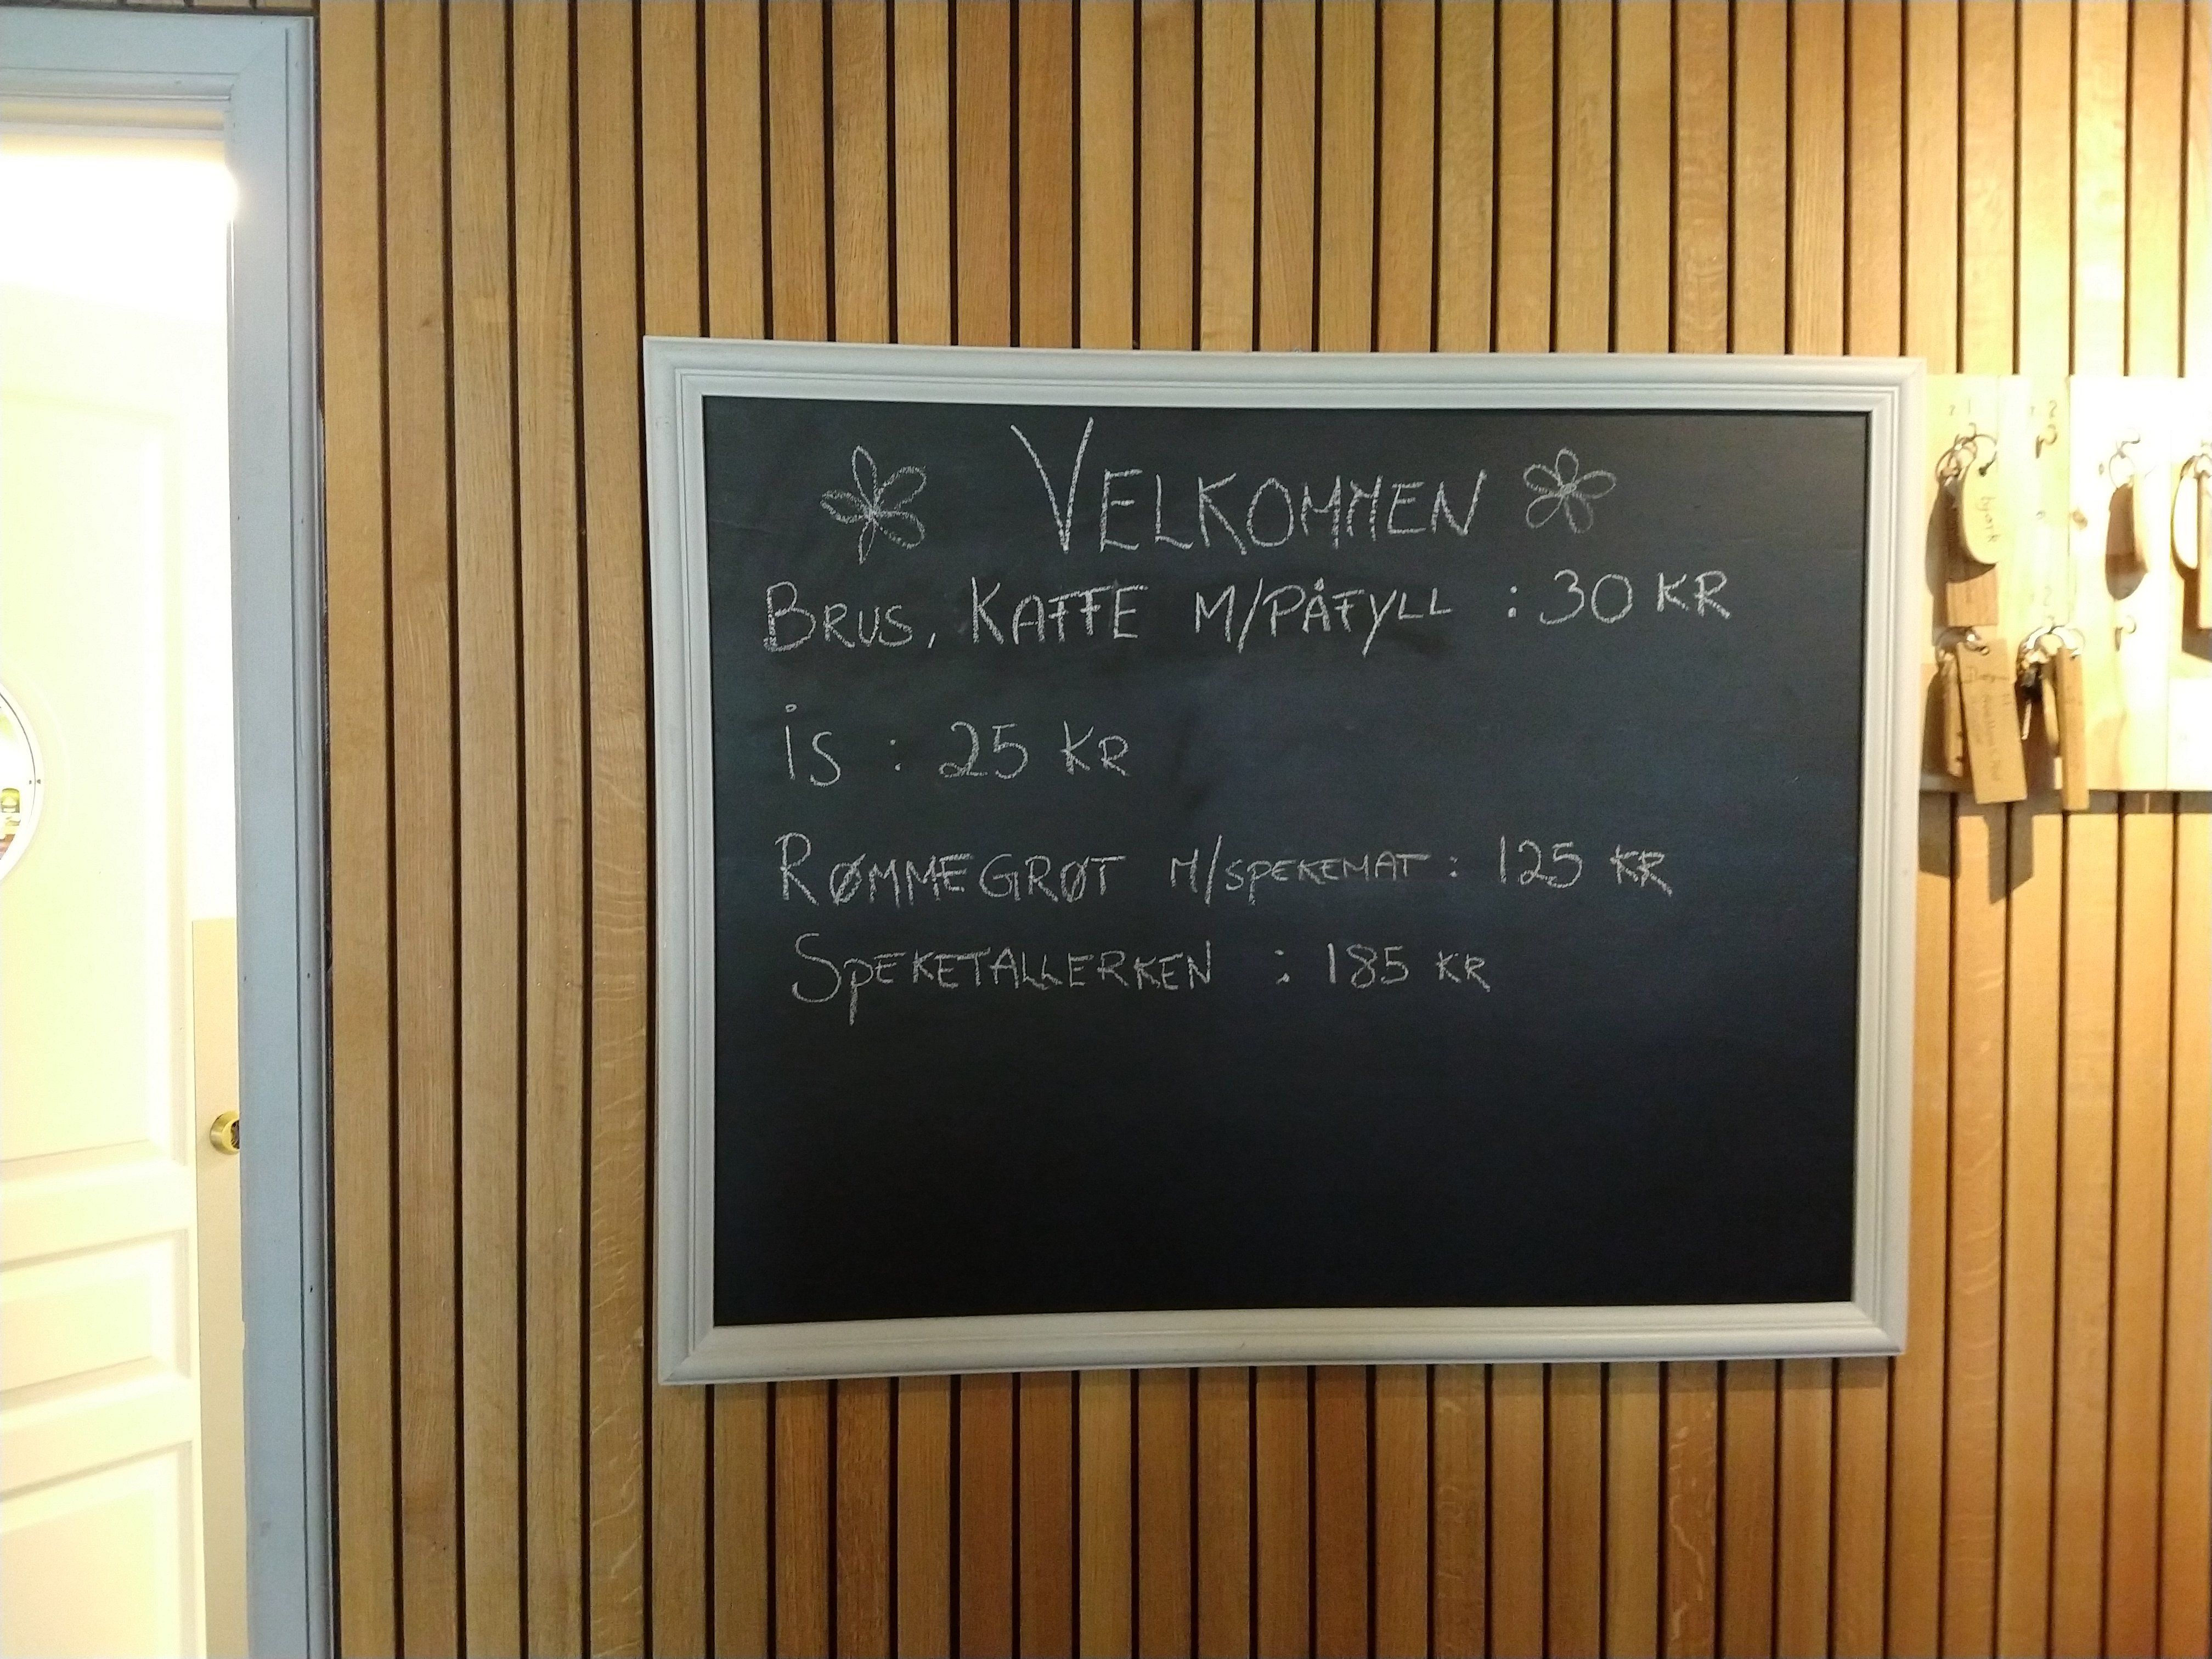 VELKOMMEN
BRUS, KAFFE M/PÅFYLL : 30 KR
is : 25 KR
RØMMEGRØT M/SPEKEMAT : 125 KR
SPEKETALLERKEN : 185 KR
1
2
bjørk